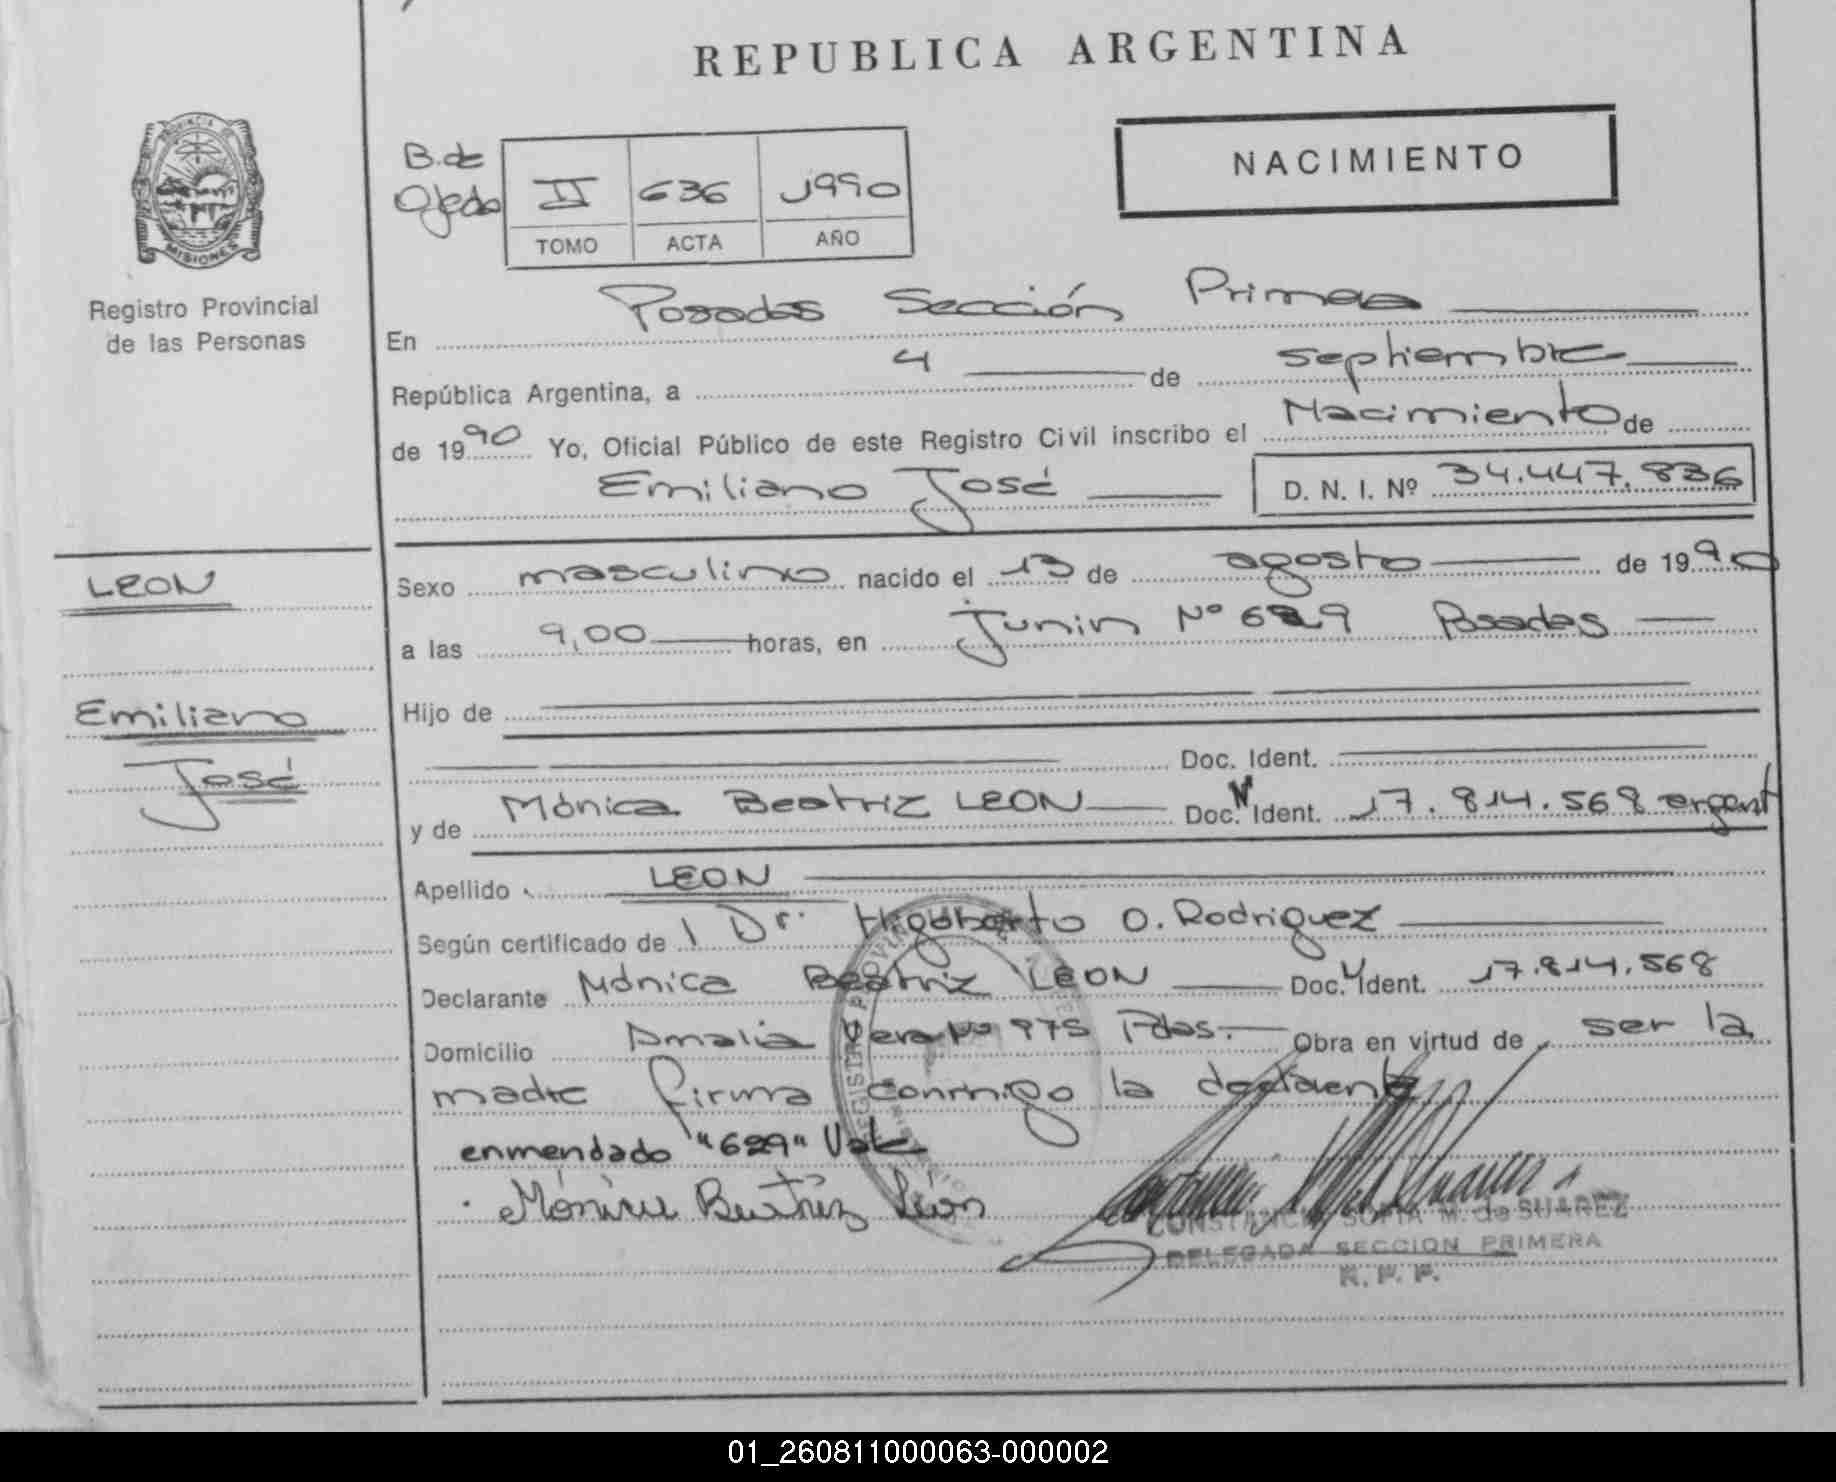 REPUBLICA ARGENTINA
PROVINCIA DE MISIONES
Registro Provincial
de las Personas
B. de Ojeda
II 636 1990
TOMO ACTA AÑO
NACIMIENTO
En Posadas Sección Primera
República Argentina, a 4 de septiembre
de 1990 Yo, Oficial Público de este Registro Civil inscribo el Nacimiento de
Emiliano José D. N. I. Nº 34.447.836
LEON
Emiliano
José
Sexo masculino nacido el 13 de agosto de 1990
a las 9,00 horas, en Junin Nº 629 Posadas
Hijo de
Doc. Ident.
y de Mónica Beatriz LEON Doc. Ident. 17.814.568 argent
Apellido LEON
Según certificado de Dr. O. Rodriguez
Declarante Mónica Beatriz LEON Doc. Ident. 17.814.568
Domicilio Amalia Vera Nº 975 Pdas. Obra en virtud de ser la
madre firma conmigo la declarante
enmendado "629" Vale
Mónica Beatriz León
CONSTANCIA SOFIA M. de SUAREZ
DELEGADA SECCION PRIMERA
R. P. P.
01_260811000063-000002